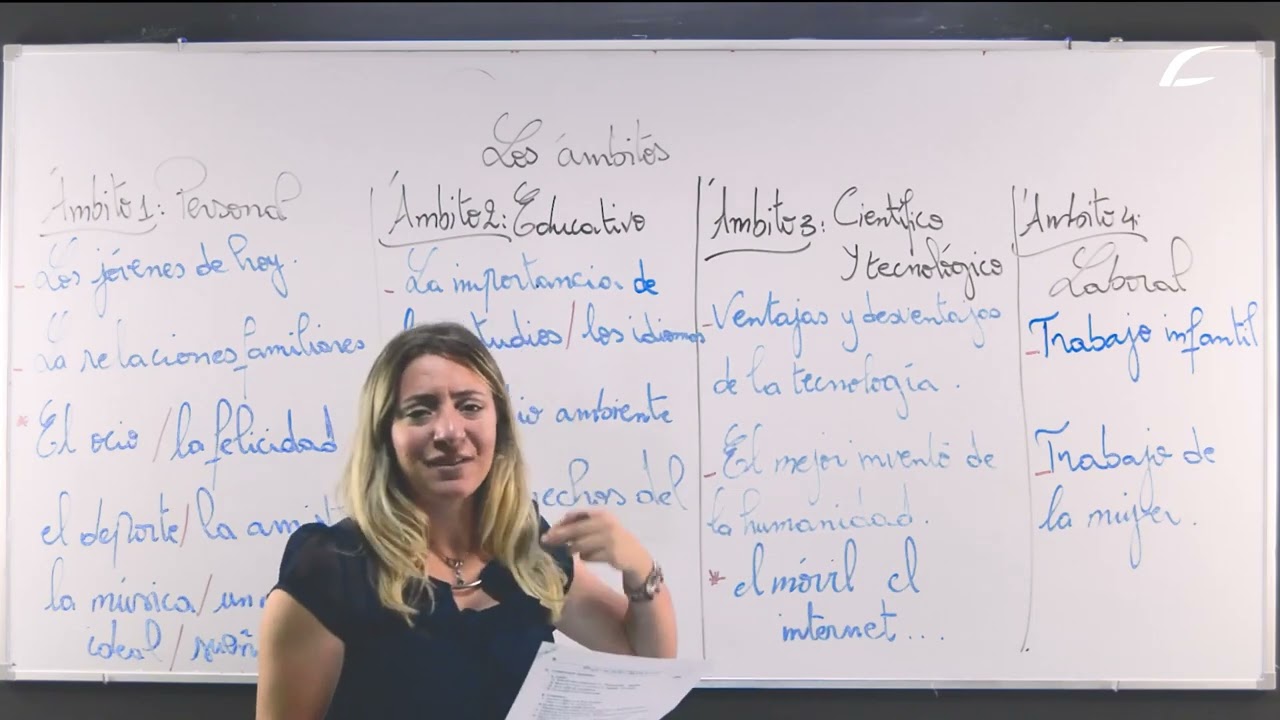 Los ámbitos
Ámbito 1: Personal
- Los jóvenes de hoy.
- La relaciones familiares
* El ocio / la felicidad
el deporte / la
la música /
ideal /
Ámbito 2: Educativo
- La importancia de
/ los idiomas
ambiente
del
Ámbito 3: Científico
y tecnológico
- Ventajas y desventajas
de la tecnología.
- El mejor invento de
la humanidad.
* el móvil el
internet...
Ámbito 4:
Laboral
- Trabajo infantil
- Trabajo de
la mujer.